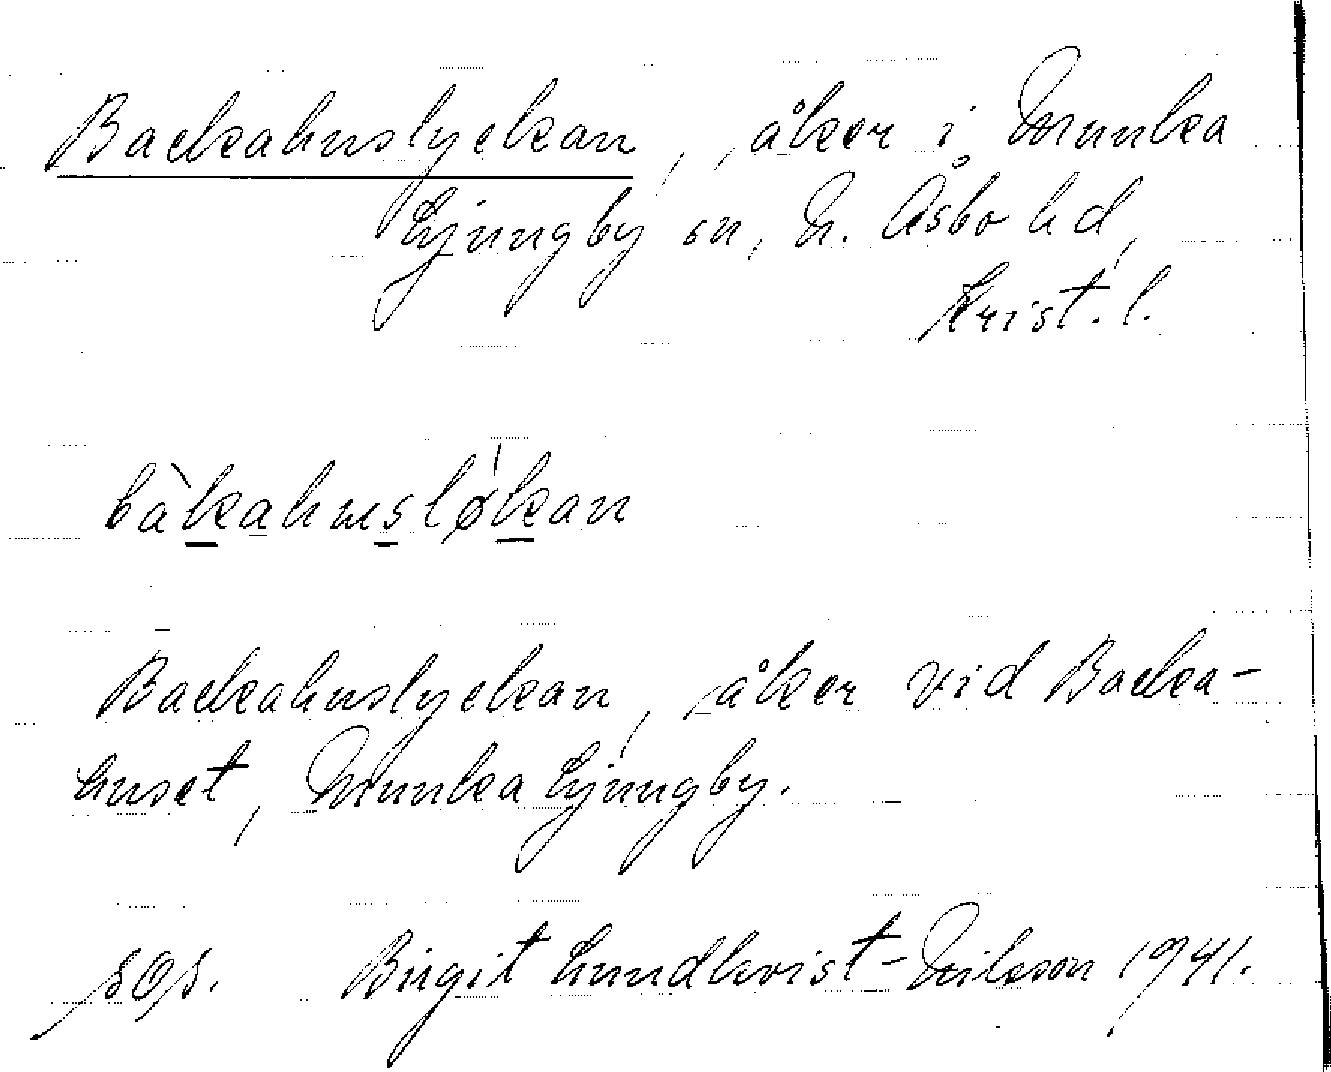 Backahuslyckan, åker i Munka
Ljungby sn, N. Åsbo hd,
Krist. l.
bàkahusslø̀kan
Backahuslyckan, åker vid Backa-
huset, Munka Ljungby.
Birgit Lundkvist-Nilsson 1941.